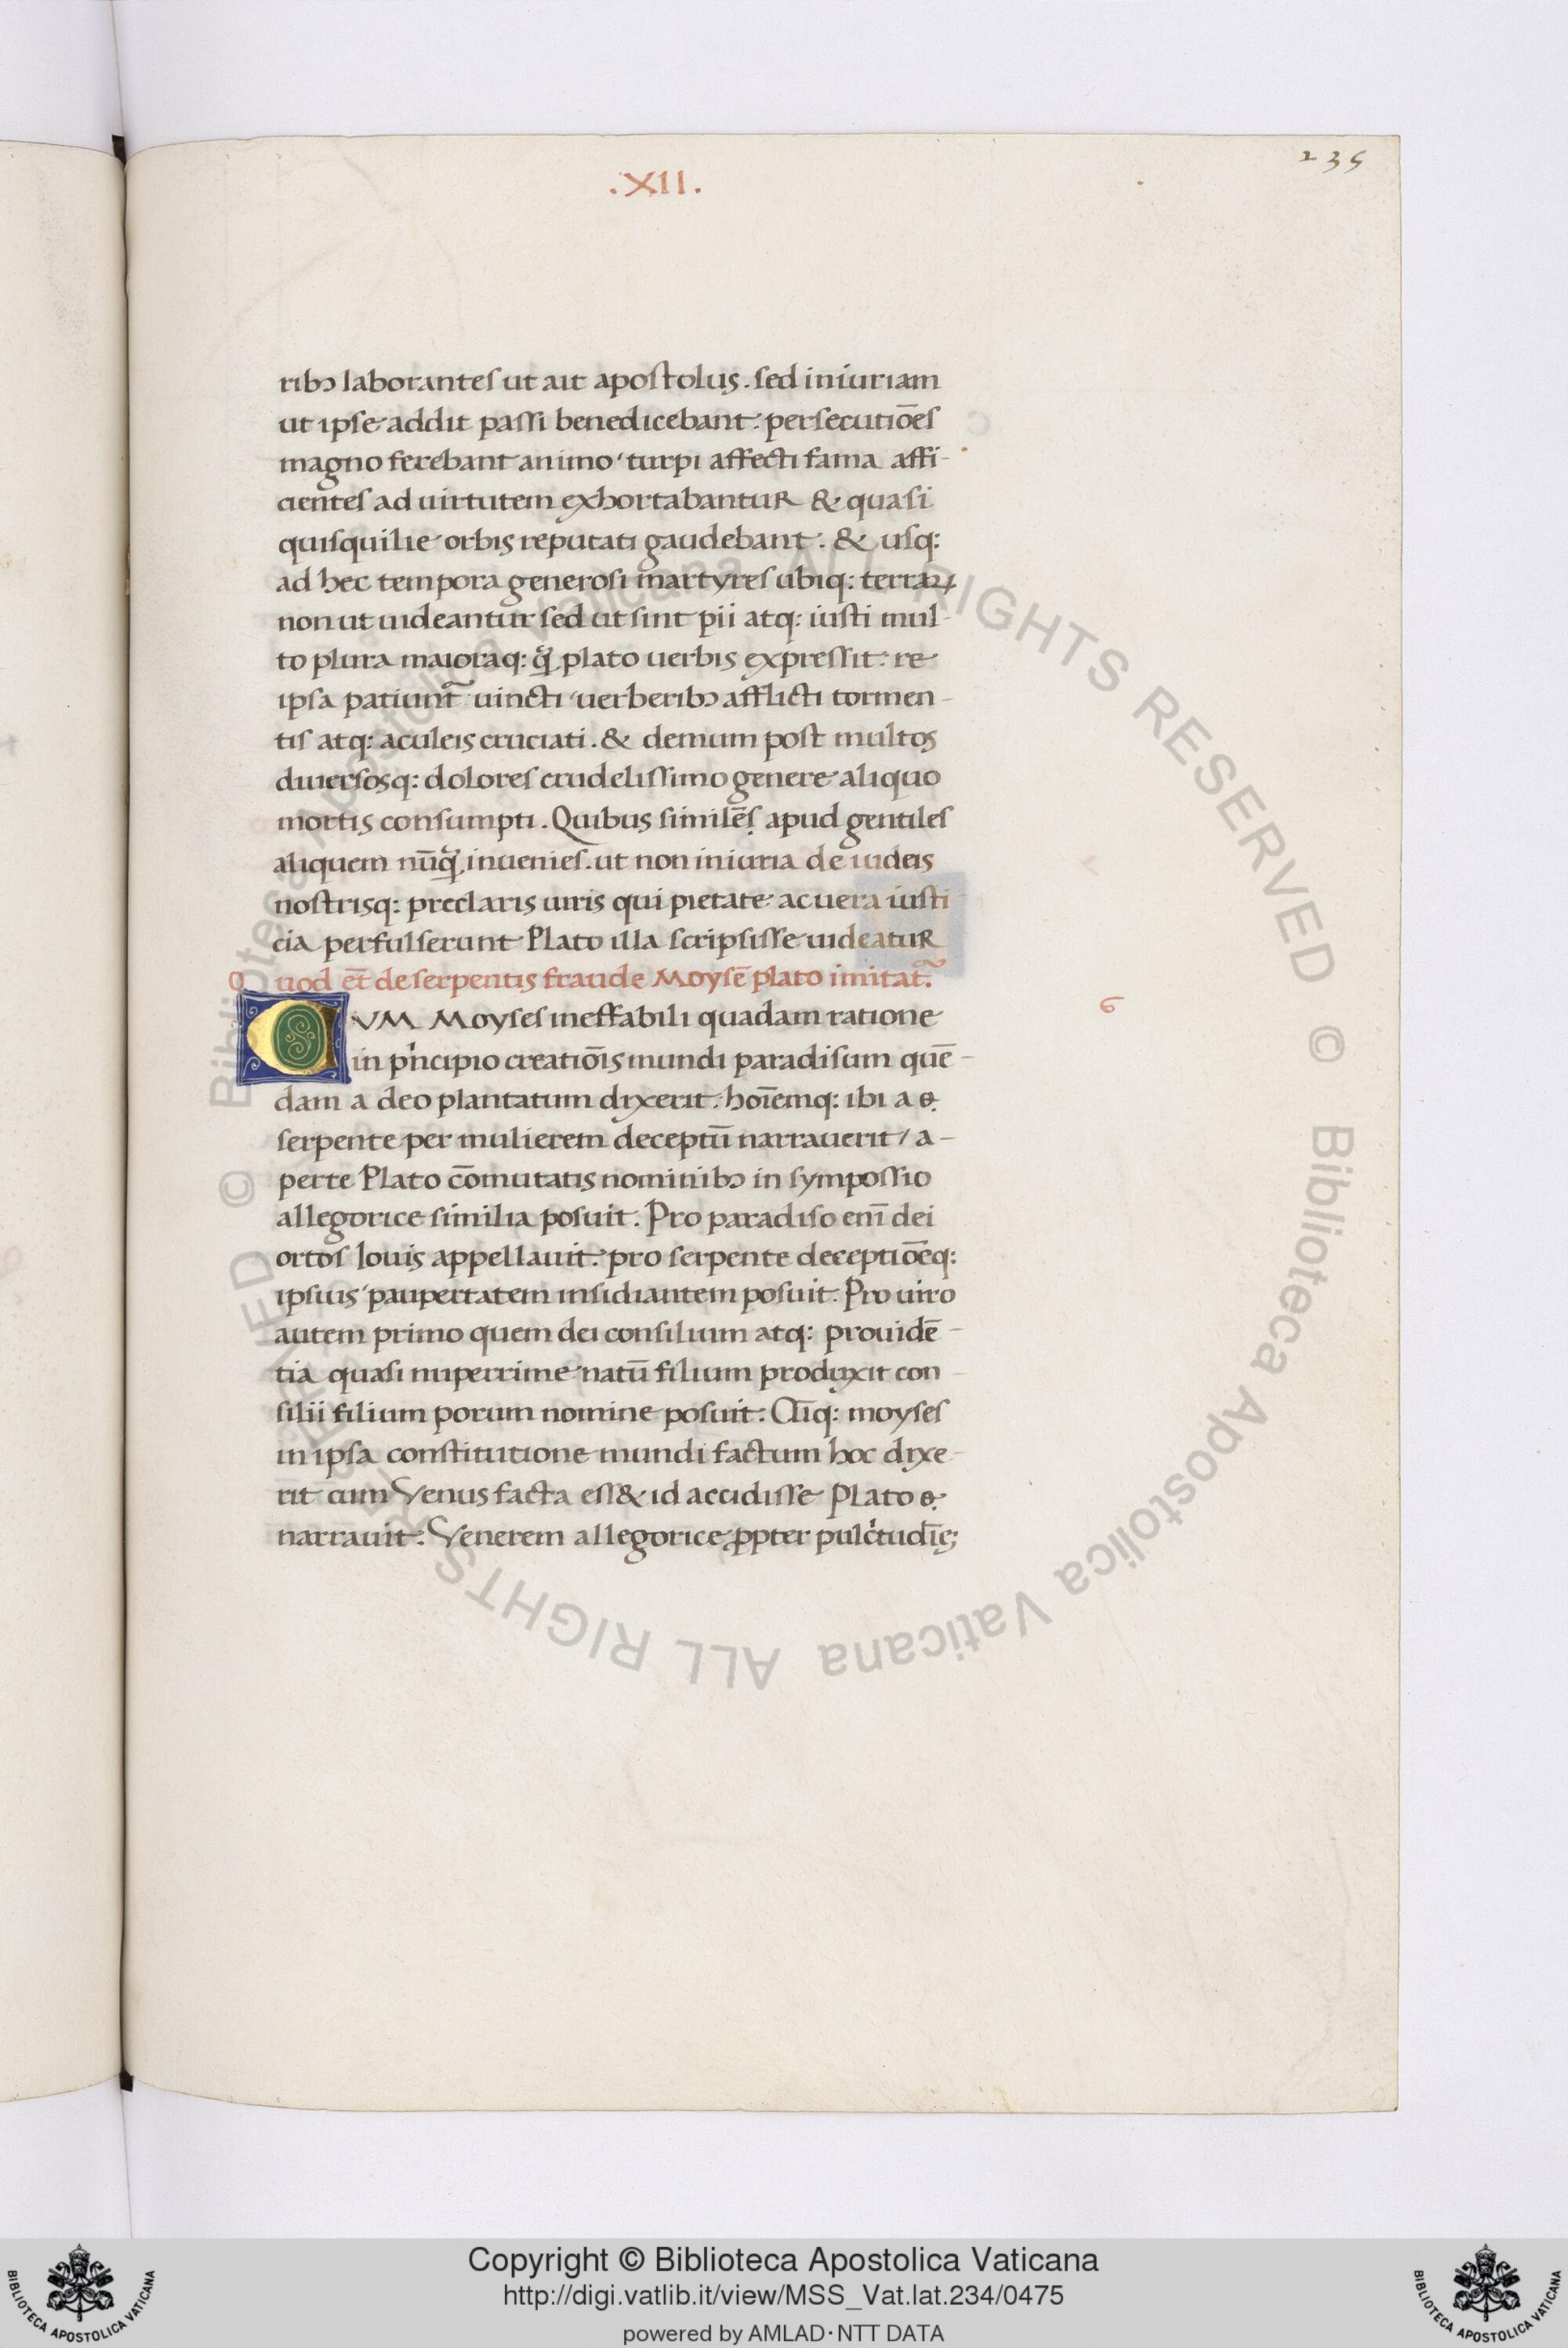 235
.XII.
ribꝰ laborantes ut ait apostolus. sed iniuriam
ut ipse addit passi benedicebant: persecutiōes
magno ferebant animo turpi affecti fama affi-
cientes ad uirtutem exhortabantur & quasi
quisquilie orbis reputati gaudebant. & usq:
ad hec tempora generosi martyres ubiq: terraꝝ
non ut uideantur sed ut sint pii atq: iusti mul-
to plura maioraq: qᷓ plato uerbis expressit: re
ipsa patiunt᷑ uincti uerberibꝰ afflicti tormen-
tis atq: aculeis cruciati. & demum post multos
diuersosq: dolores crudelissimo genere aliquo
mortis consumpti. Quibus similēs apud gentiles
aliquem nūqᷓ inuenies. ut non iniuria de iudeis
nostrisq: preclaris uiris qui pietate ac uera iusti-
cia perfulserunt Plato illa scripsisse uideatur
Quod et̄ de serpentis fraude Moysē plato imitat᷑.
6
CVM Moyses ineffabili quadam ratione
in pͥncipio creatiōis mundi paradisum quē-
dam a deo plantatum dixerit: hoīemq: ibi a
serpente per mulierem deceptū narrauerit / a-
perte Plato cōmutatis nominibꝰ in sympossio
allegorice similia posuit. Pro paradiso enī dei
ortos Iouis appellauit: pro serpente deceptiōeq:
ipsius paupertatem insidiantem posuit. Pro uiro
autem primo quem dei consilium atq: prouidē-
tia quasi nuperrime natū filium produxit con-
silii filium porum nomine posuit. Cūq: moyses
in ipsa constitutione mundi factum hoc dixe-
rit cum Venus facta ess& id accidisse Plato
narrauit: Venerem allegorice ꝓpter pulcͥtudīs
ALL RIGHTS RESERVED © Biblioteca Apostolica Vaticana ALL RIGHTS RESERVED © Biblioteca Apostolica Vaticana
Copyright © Biblioteca Apostolica Vaticana
http://digi.vatlib.it/view/MSS_Vat.lat.234/0475
powered by AMLAD·NTT DATA
BIBLIOTECA APOSTOLICA VATICANA
BIBLIOTECA APOSTOLICA VATICANA